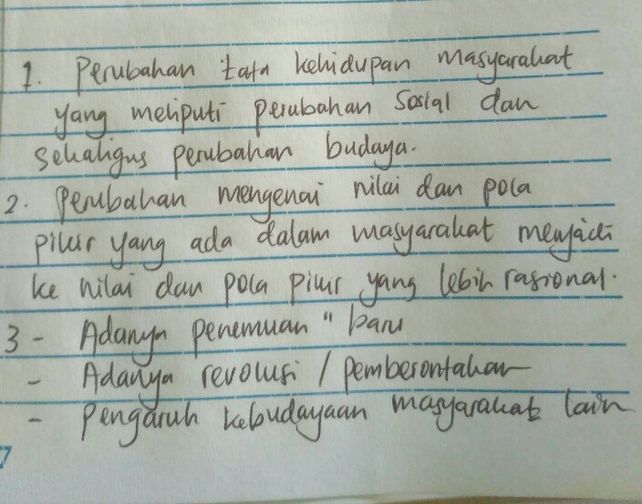 1. Perubahan tata kehidupan masyarakat
yang meliputi perubahan sosial dan
sekaligus perubahan budaya.
2. Perubahan mengenai nilai dan pola
pikir yang ada dalam masyarakat menjadi
ke nilai dan pola pikir yang lebih rasional.
3 - Adanya penemuan " baru
- Adanya revolusi / pemberontakan
- Pengaruh kebudayaan masyarakat lain